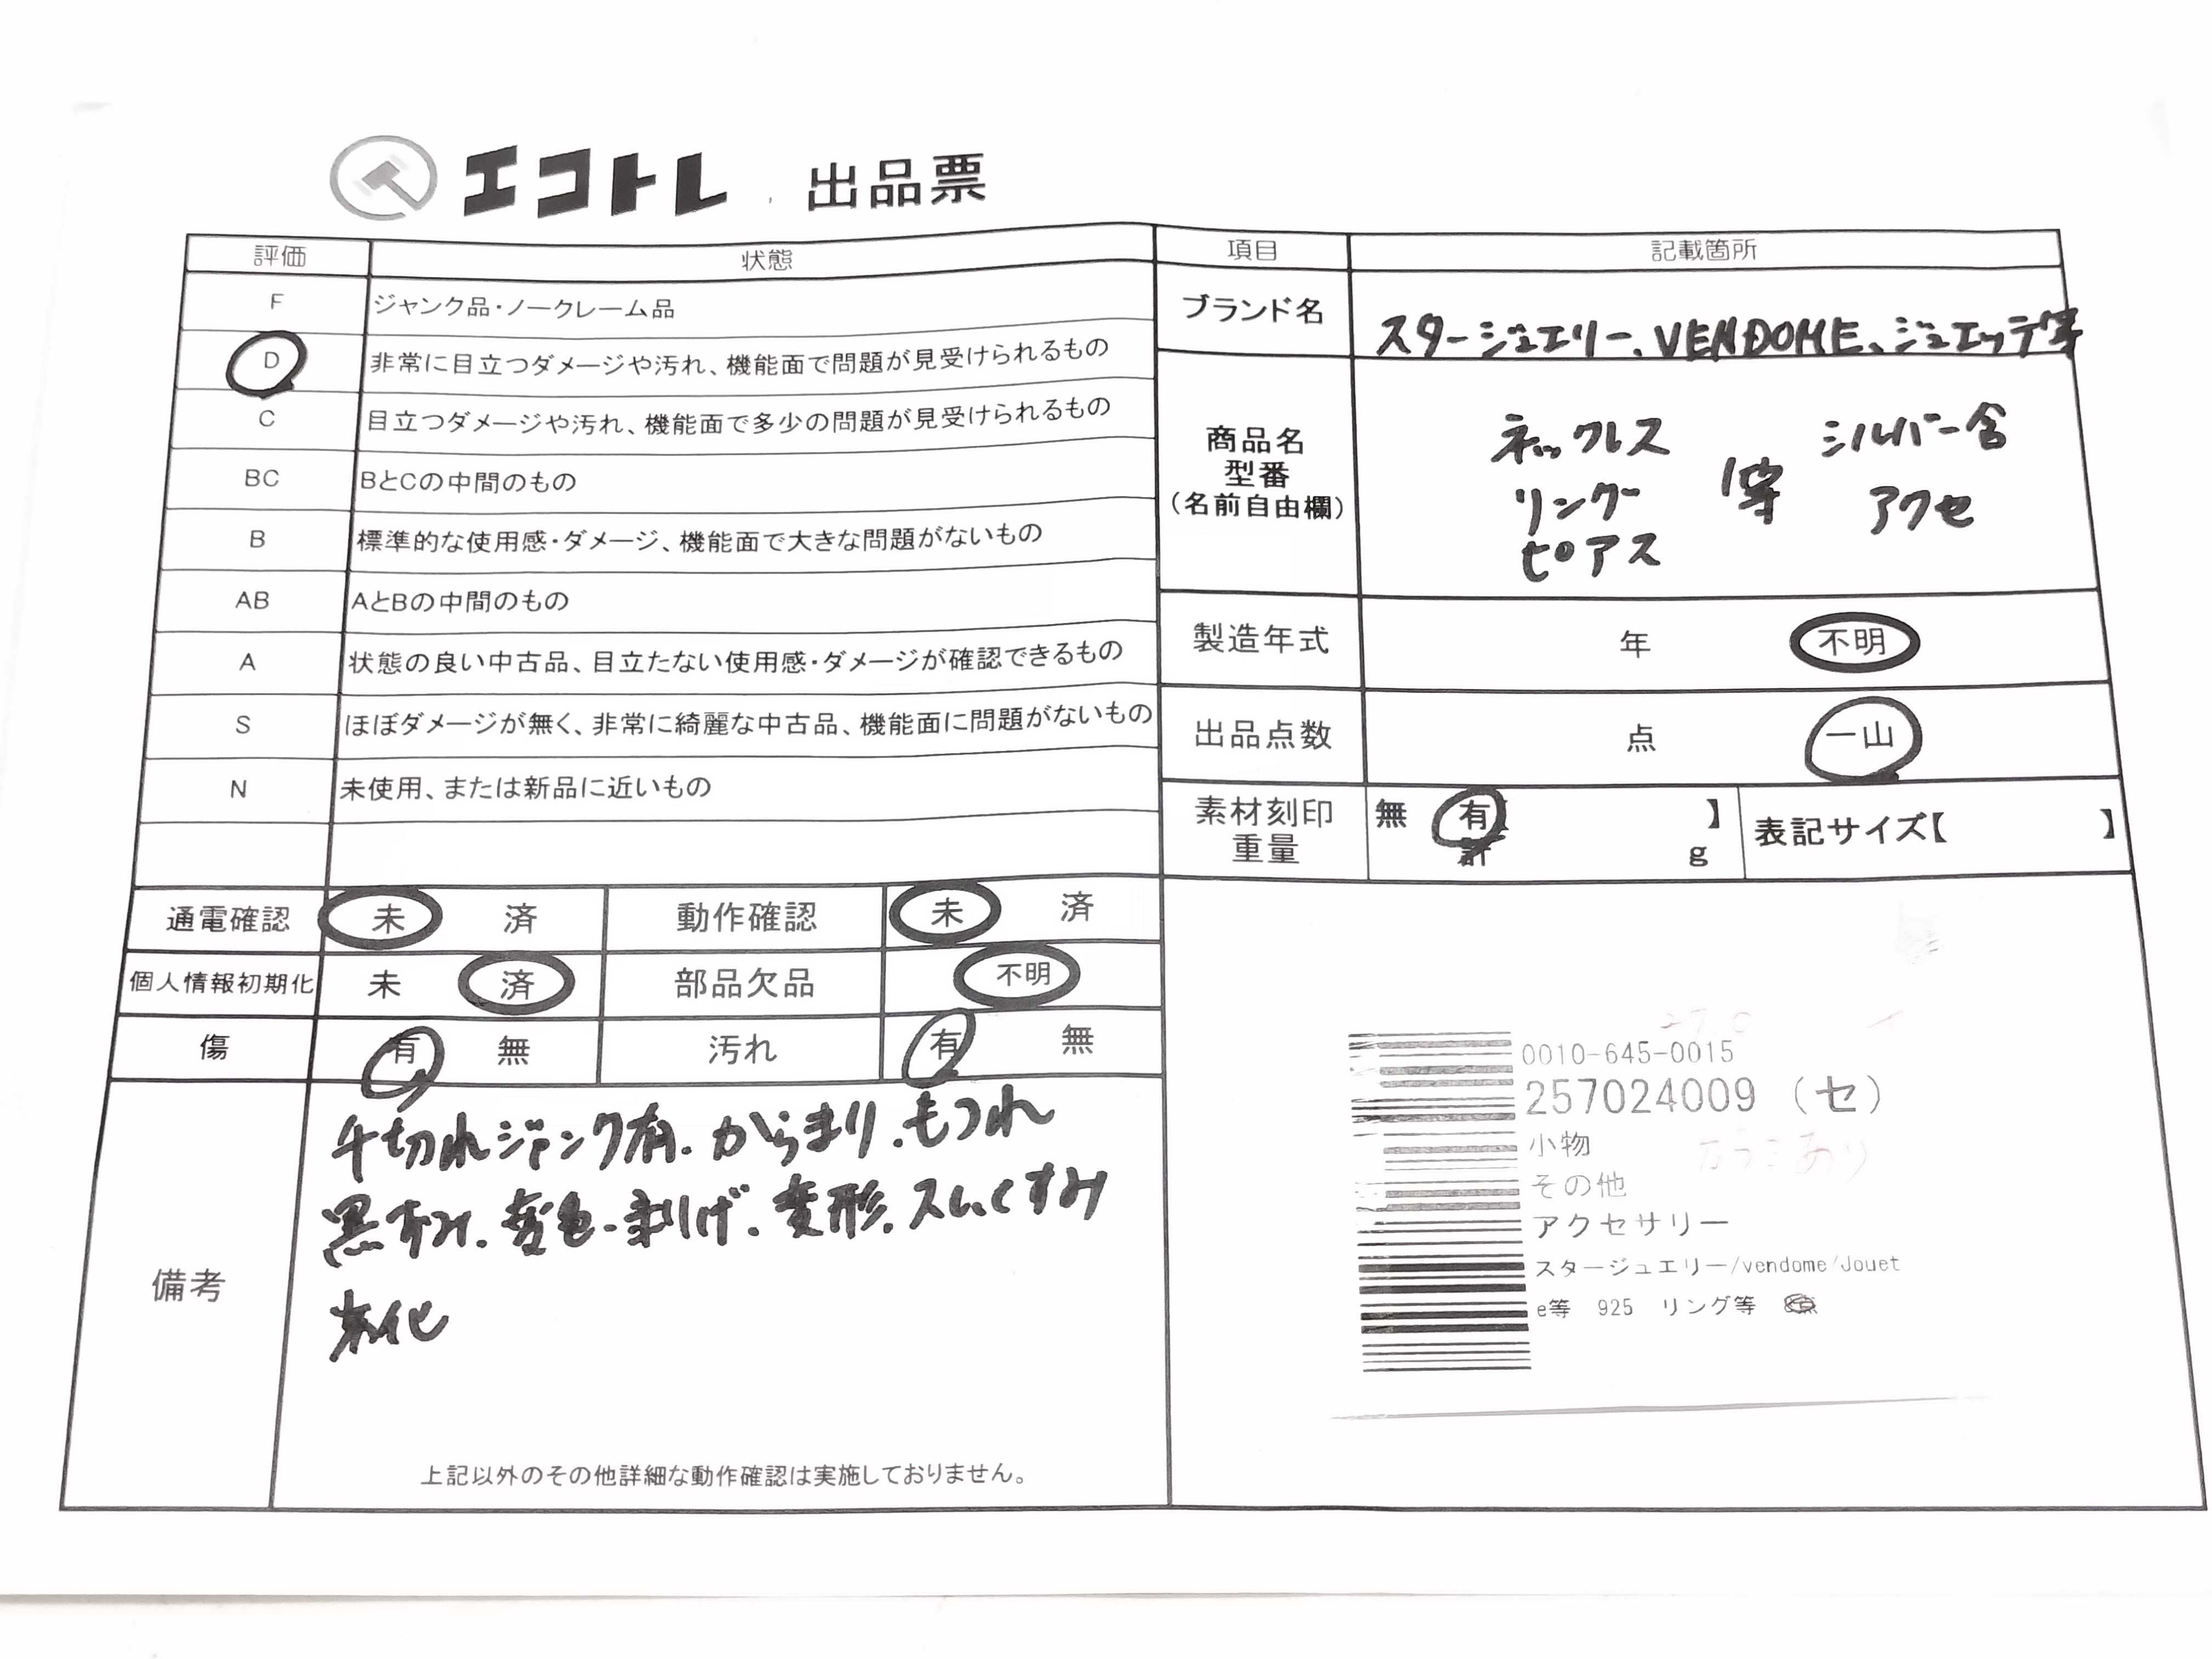 エコトレ 出品票
評価 状態
F ジャンク品・ノークレーム品
D 非常に目立つダメージや汚れ、機能面で問題が見受けられるもの
C 目立つダメージや汚れ、機能面で多少の問題が見受けられるもの
BC BとCの中間のもの
B 標準的な使用感・ダメージ、機能面で大きな問題がないもの
AB AとBの中間のもの
A 状態の良い中古品、目立たない使用感・ダメージが確認できるもの
S ほぼダメージが無く、非常に綺麗な中古品、機能面に問題がないもの
N 未使用、または新品に近いもの
通電確認 未 済 動作確認 未 済
個人情報初期化 未 済 部品欠品 不明
傷 有 無 汚れ 有 無
備考
千切れジャンク有.からまり.もつれ
黒ずみ.変色.剥げ.変形.スレ.くすみ
劣化
上記以外のその他詳細な動作確認は実施しておりません。
項目 記載箇所
ブランド名 スタージュエリー、VENDOME、ジュエッテ等
商品名
型番
(名前自由欄)
ネックレス
リング
ピアス
等
シルバー含
アクセ
製造年式 年 不明
出品点数 点 一山
素材刻印 無 有 】
重量 計 g
表記サイズ【 】
0010-645-0015
257024009 (セ)
小物
その他
アクセサリー
スタージュエリー/vendome/Jouet
e等 925 リング等